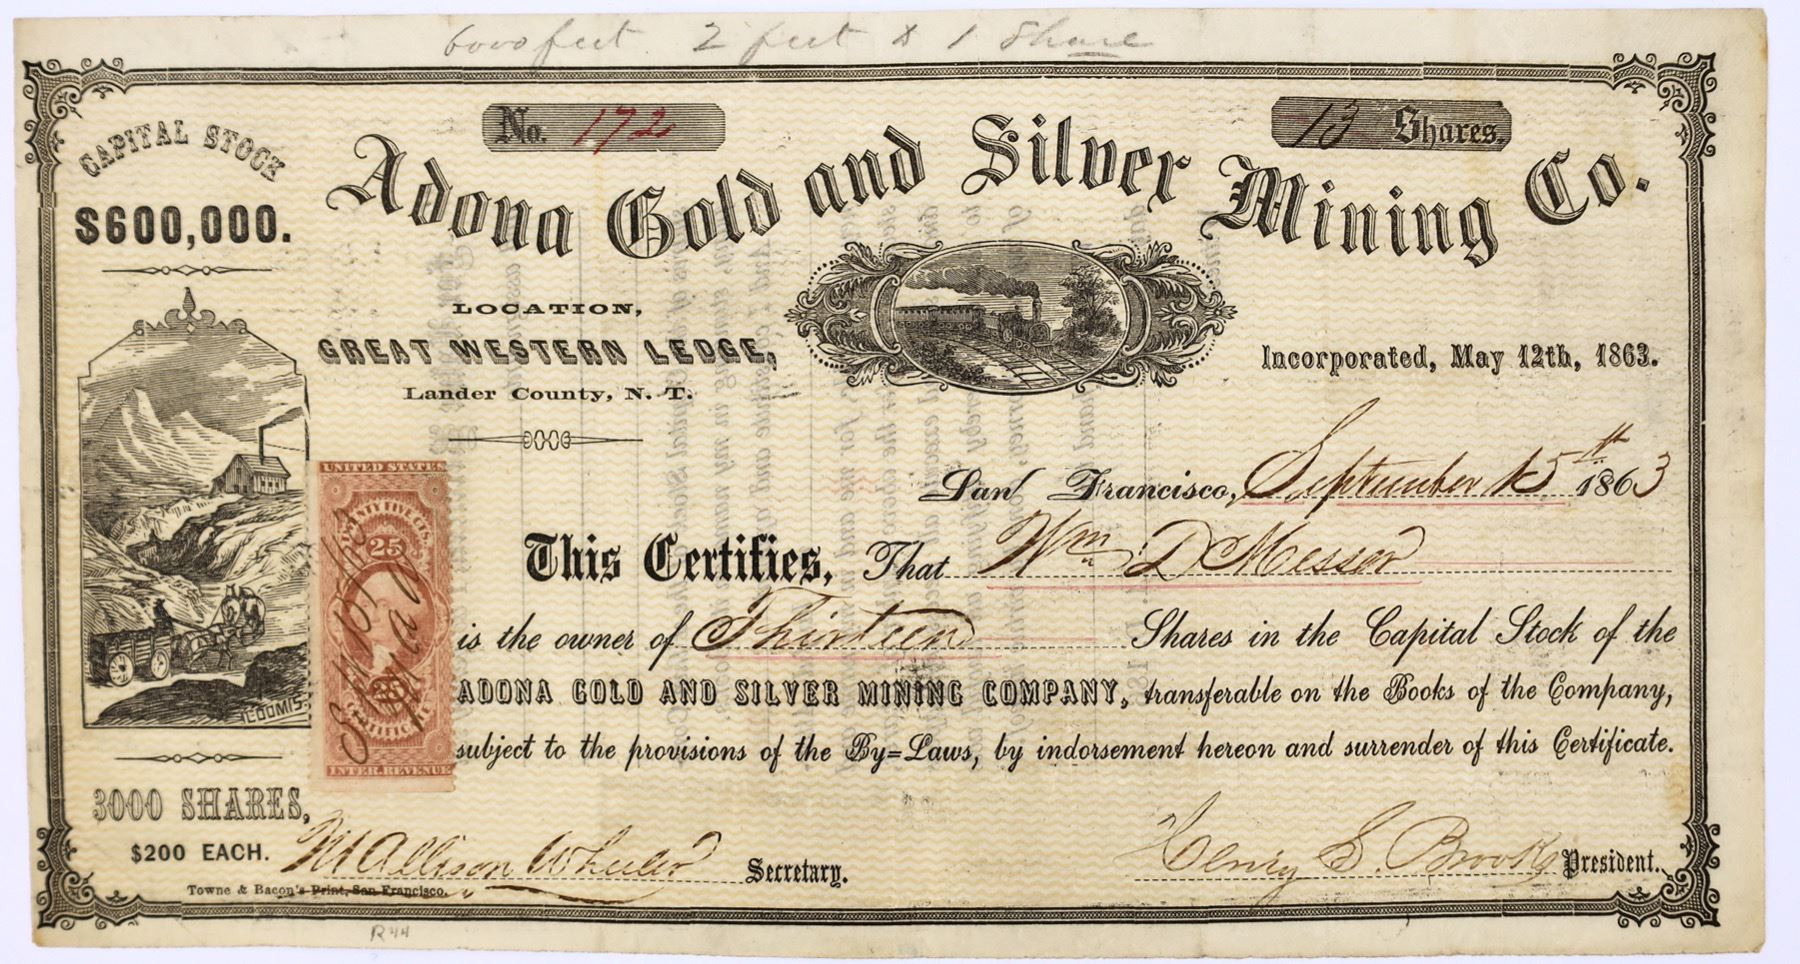 6000 feet 2 feet X 1 Share
No. 172
13 Shares.
CAPITAL STOCK
$600,000.
Adona Gold and Silver Mining Co.
LOCATION,
GREAT WESTERN LEDGE,
Lander County, N. T.
Incorporated, May 12th, 1863.
San Francisco, September 15th 1863
This Certifies, That Wm D Messer
is the owner of Thirteen Shares in the Capital Stock of the
ADONA GOLD AND SILVER MINING COMPANY, transferable on the Books of the Company,
subject to the provisions of the By=Laws, by indorsement hereon and surrender of this Certificate.
UNITED STATES
TWENTY FIVE CTS.
25
25
CERTIFICATE
INTER. REVENUE
LOOMIS
3000 SHARES,
$200 EACH.
M Allison Wheeler Secretary.
Henry S. Brooks President.
Towne & Bacon's Print, San Francisco.
R44